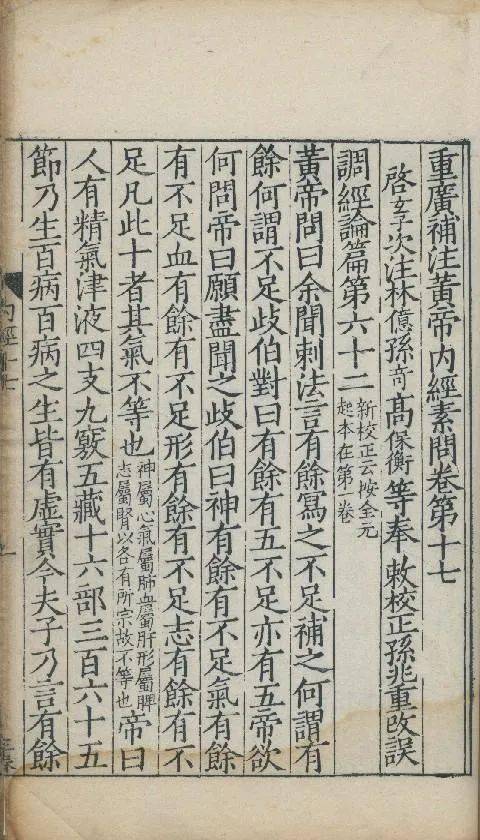 重廣補注黃帝內經素問卷第十七
啓玄子次注林億孫奇高保衡等奉敕校正孫兆重改誤
調經論篇第六十二
新校正云按全元
起本在第一卷
黃帝問曰余聞刺法言有餘寫之不足補之何謂有
餘何謂不足歧伯對曰有餘有五不足亦有五帝欲
何問帝曰願盡聞之歧伯曰神有餘有不足氣有餘
有不足血有餘有不足形有餘有不足志有餘有不
足凡此十者其氣不等也
神屬心氣屬肺血屬肝形屬脾
志屬腎以各有所宗故不等也
帝曰
人有精氣津液四支九竅五藏十六部三百六十五
節乃生百病百病之生皆有虛實今夫子乃言有餘